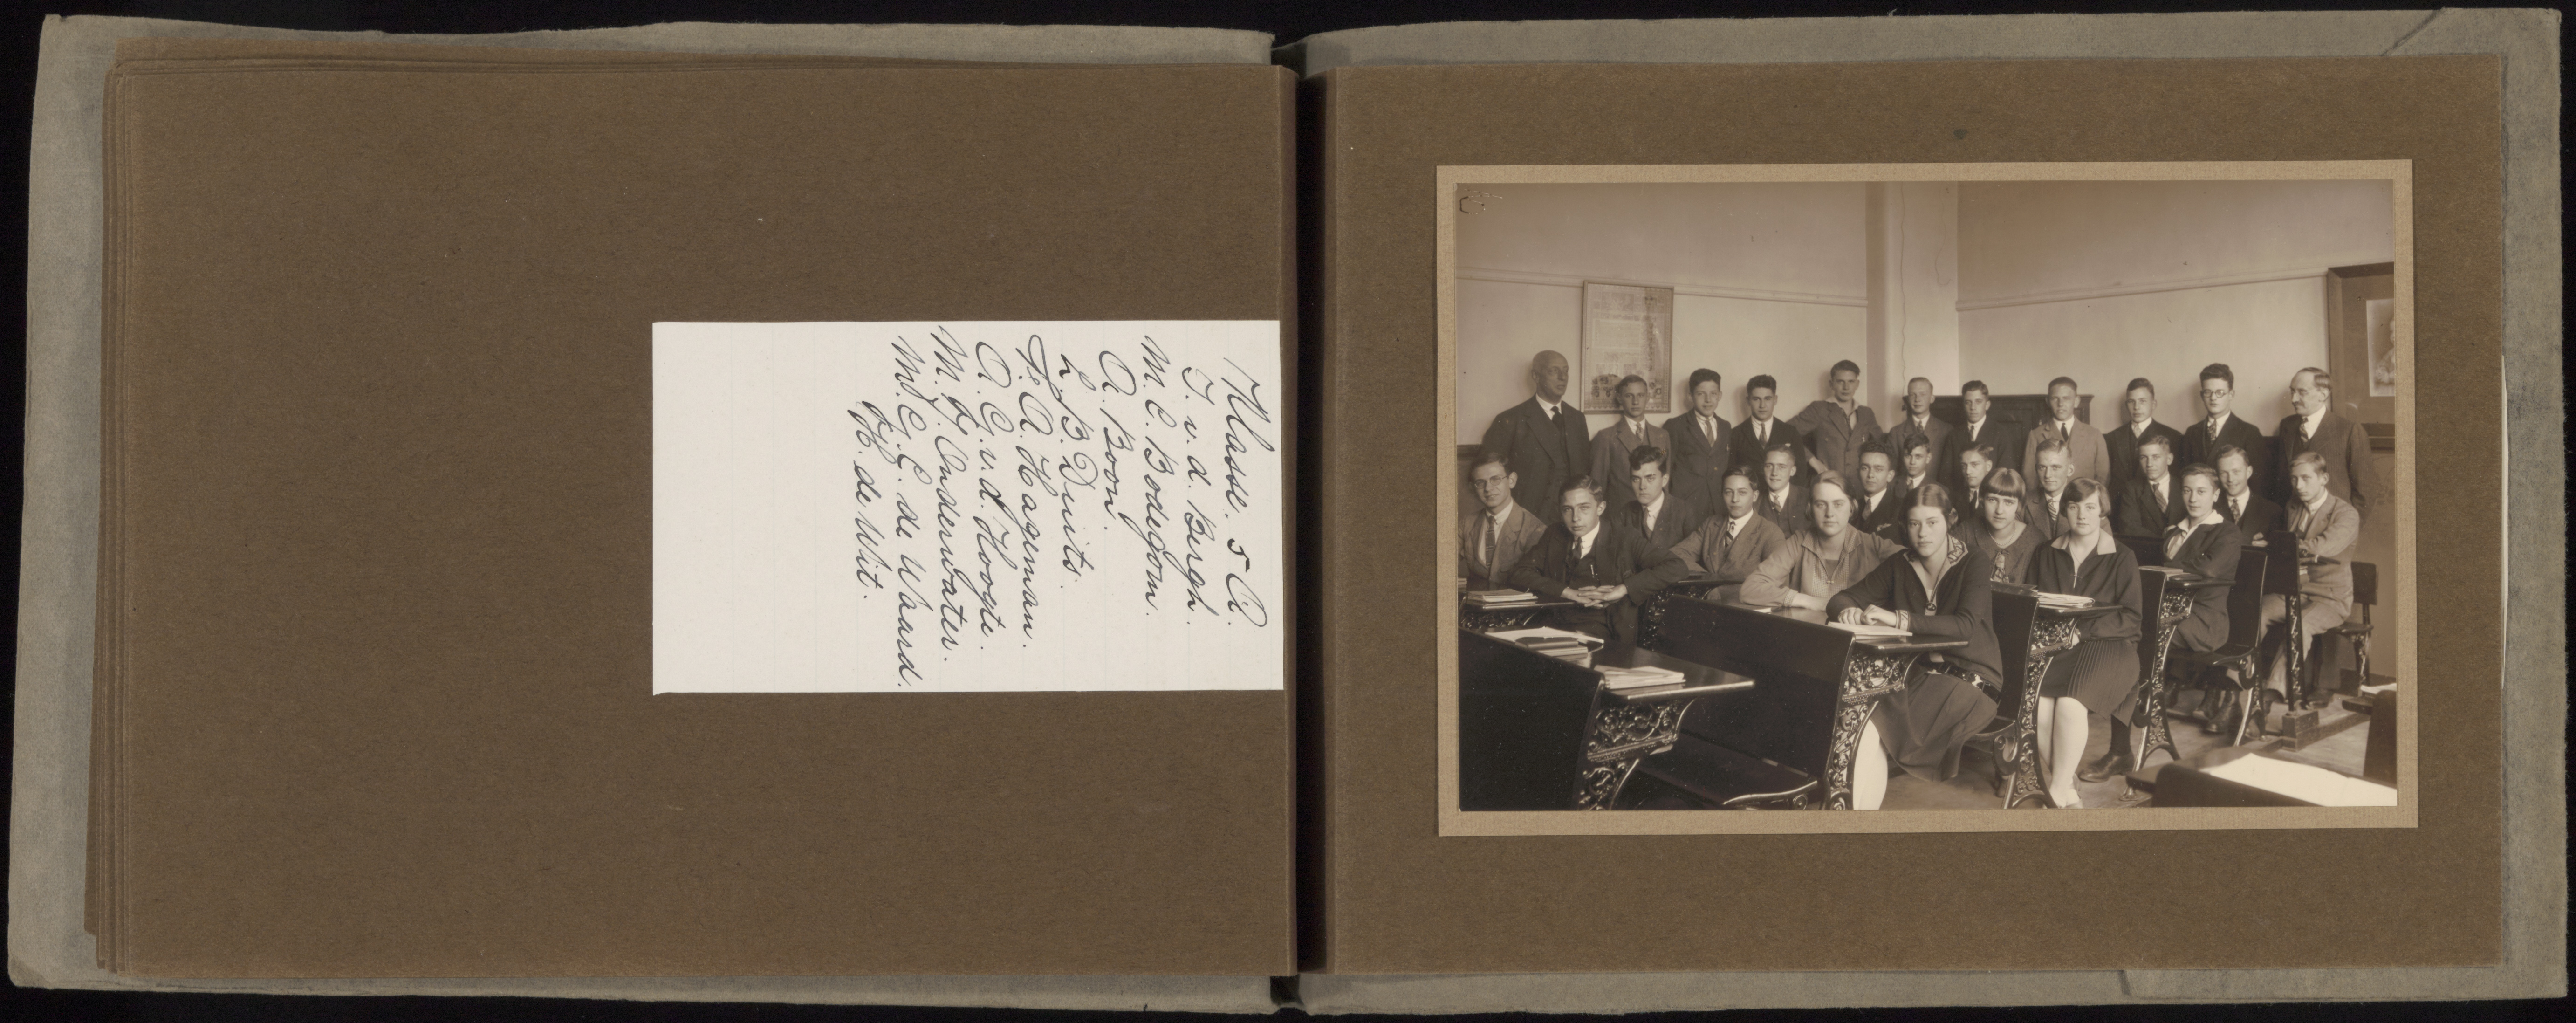 Klasse. 5 A.
J. v. d. Bergh.
M. C. Bodegom.
A. Boon.
L. B. Duits.
F. A. Hageman.
A. G. v. d. Hoogte.
M. J. Onderwater.
M. G. C. de Waard.
H. de Wit.